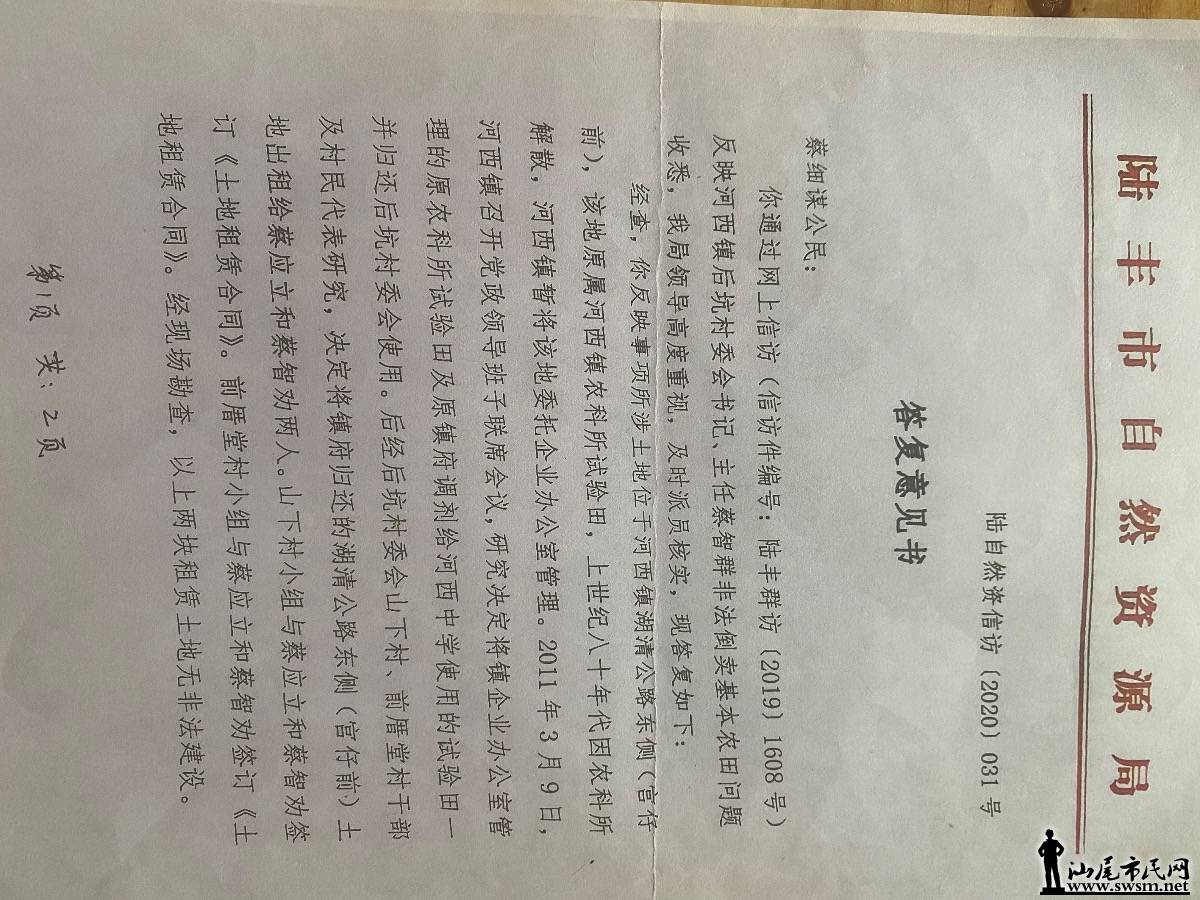 陆丰市自然资源局
陆自然资信访〔2020〕031号
答复意见书
蔡细谋公民：
你通过网上信访（信访件编号：陆丰群访〔2019〕1608号）
反映河西镇后坑村委会书记、主任蔡智群非法倒卖基本农田问题
收悉，我局领导高度重视，及时派员核实，现答复如下：
经查，你反映事项所涉土地位于河西镇湖清公路东侧（宫仔
前），该地原属河西镇农科所试验田，上世纪八十年代因农科所
解散，河西镇暂将该地委托企业办公室管理。2011年3月9日，
河西镇召开党政领导班子联席会议，研究决定将镇企业办公室管
理的原农科所试验田及原镇府调剂给河西中学使用的试验田一
并归还后坑村委会使用。后经后坑村委会山下村、前厝堂村干部
及村民代表研究，决定将镇府归还的湖清公路东侧（宫仔前）土
地出租给蔡应立和蔡智劝两人。山下村小组与蔡应立和蔡智劝签
订《土地租赁合同》。前厝堂村小组与蔡应立和蔡智劝签订《土
地租赁合同》。经现场勘查，以上两块租赁土地无非法建设。
第1页 共：2页
汕尾市民网
www.swsm.net